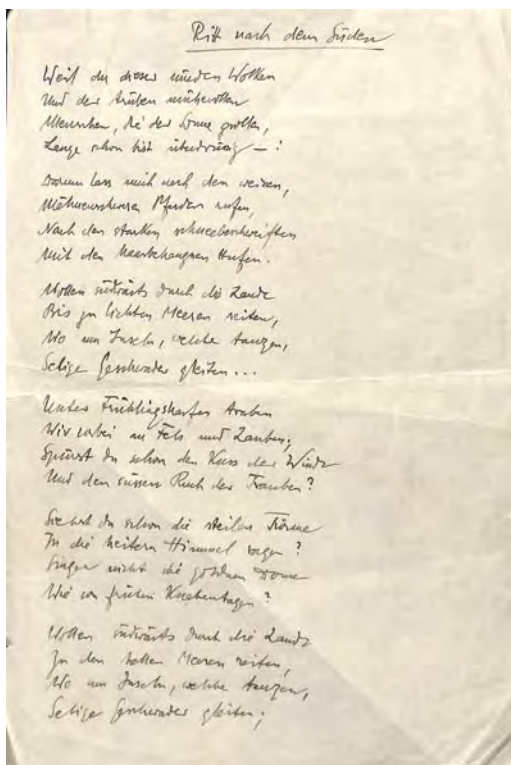 Ritt nach dem Süden
Weil du dieser müden Wolken
Und der trüben mühevollen
Menschen, die der Sonne grollen,
Lange schon bist überdrüssig — :
Darum lass mich nach den weissen,
Pferden rufen,
Nach den starken schneebeschweiften
Mit den haarbehangnen Hufen.
Wollen südwärts durch die Lande
Bis zu lichten Meeren reiten,
Wo um Inseln, welche tanzen,
Selige Geschwader gleiten...
Unter Frühlingsharfen traben
Wir vorbei an Fels und Lauben;
Spürst du schon den Kuss der Winde
Und den süssen Ruch der Trauben?
Siehst du schon die steilen Türme
In die heitern Himmel ragen?
Singen nicht die goldnen Dome
Wie in frühen Knabentagen?
Wollen südwärts durch die Lande
Zu den hellen Meeren reiten,
Wo um Inseln, welche tanzen,
Selige Geschwader gleiten;